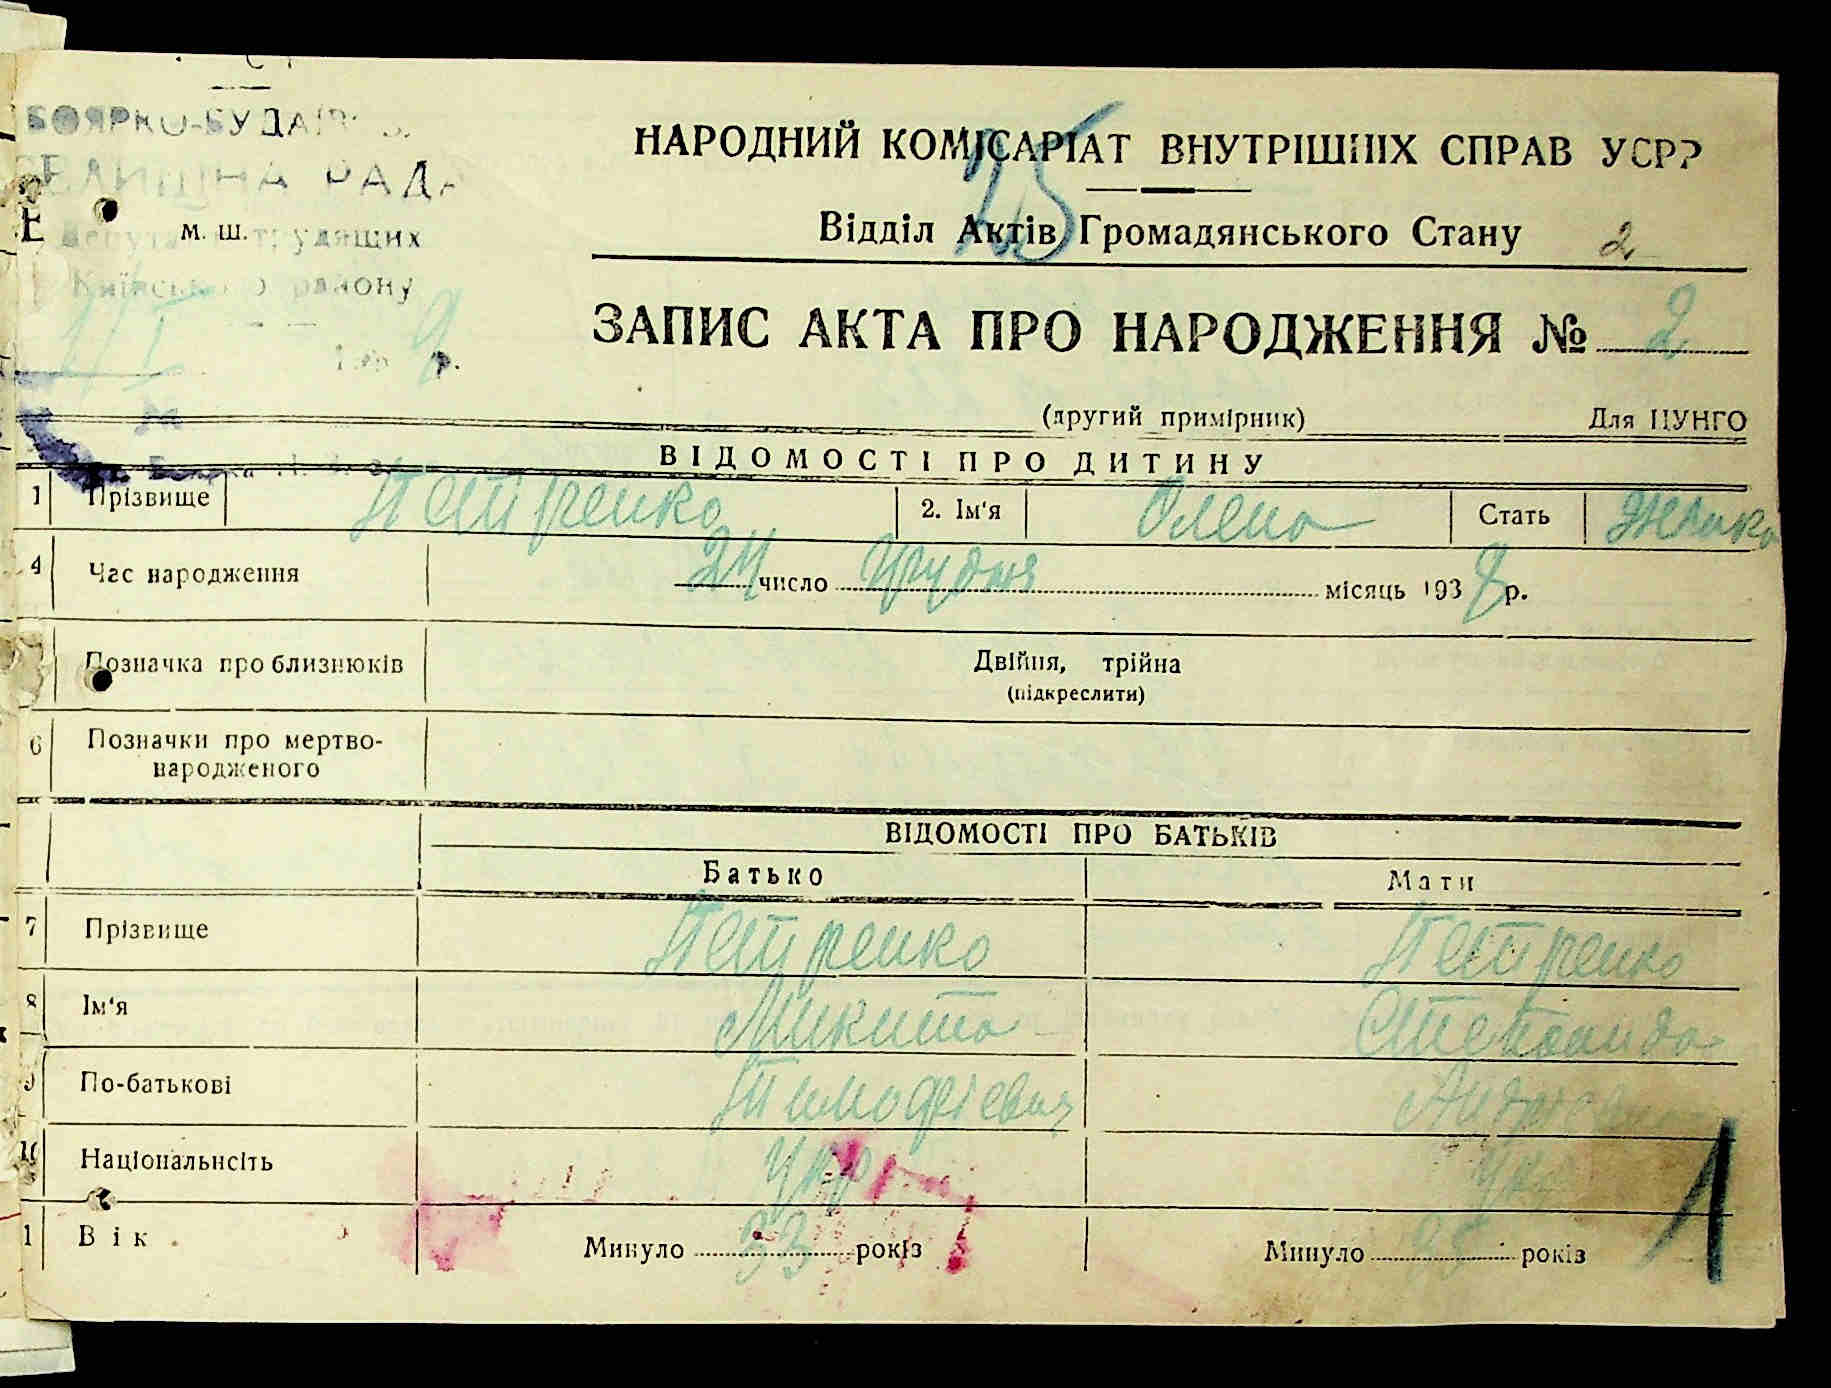 БОЯРКО-БУДАЇВ
СЕЛИЩНА РАДА
м. ш. трудящих
Київськ району
1/I 9 р.
№
25
НАРОДНИЙ КОМІСАРІАТ ВНУТРІШНІХ СПРАВ УСРР
Відділ Актів Громадянського Стану 2
ЗАПИС АКТА ПРО НАРОДЖЕННЯ № 2
(другий примірник) Для ЦУНГО
ВІДОМОСТІ ПРО ДИТИНУ
1 Прізвище Петренко 2. Ім'я Олена Стать Жіноча
4 Час народження 24 число Грудня місяць 1938 р.
Позначка про близнюків Двійня, трійна
(підкреслити)
6 Позначки про мертво-
народженого
ВІДОМОСТІ ПРО БАТЬКІВ
Батько Мати
7 Прізвище Петренко Петренко
8 Ім'я Микита Степанида
9 По-батькові Тимофієвич Андріївна
10 Національнсіть укр укр
1 Вік Минуло 33 років Минуло років
1